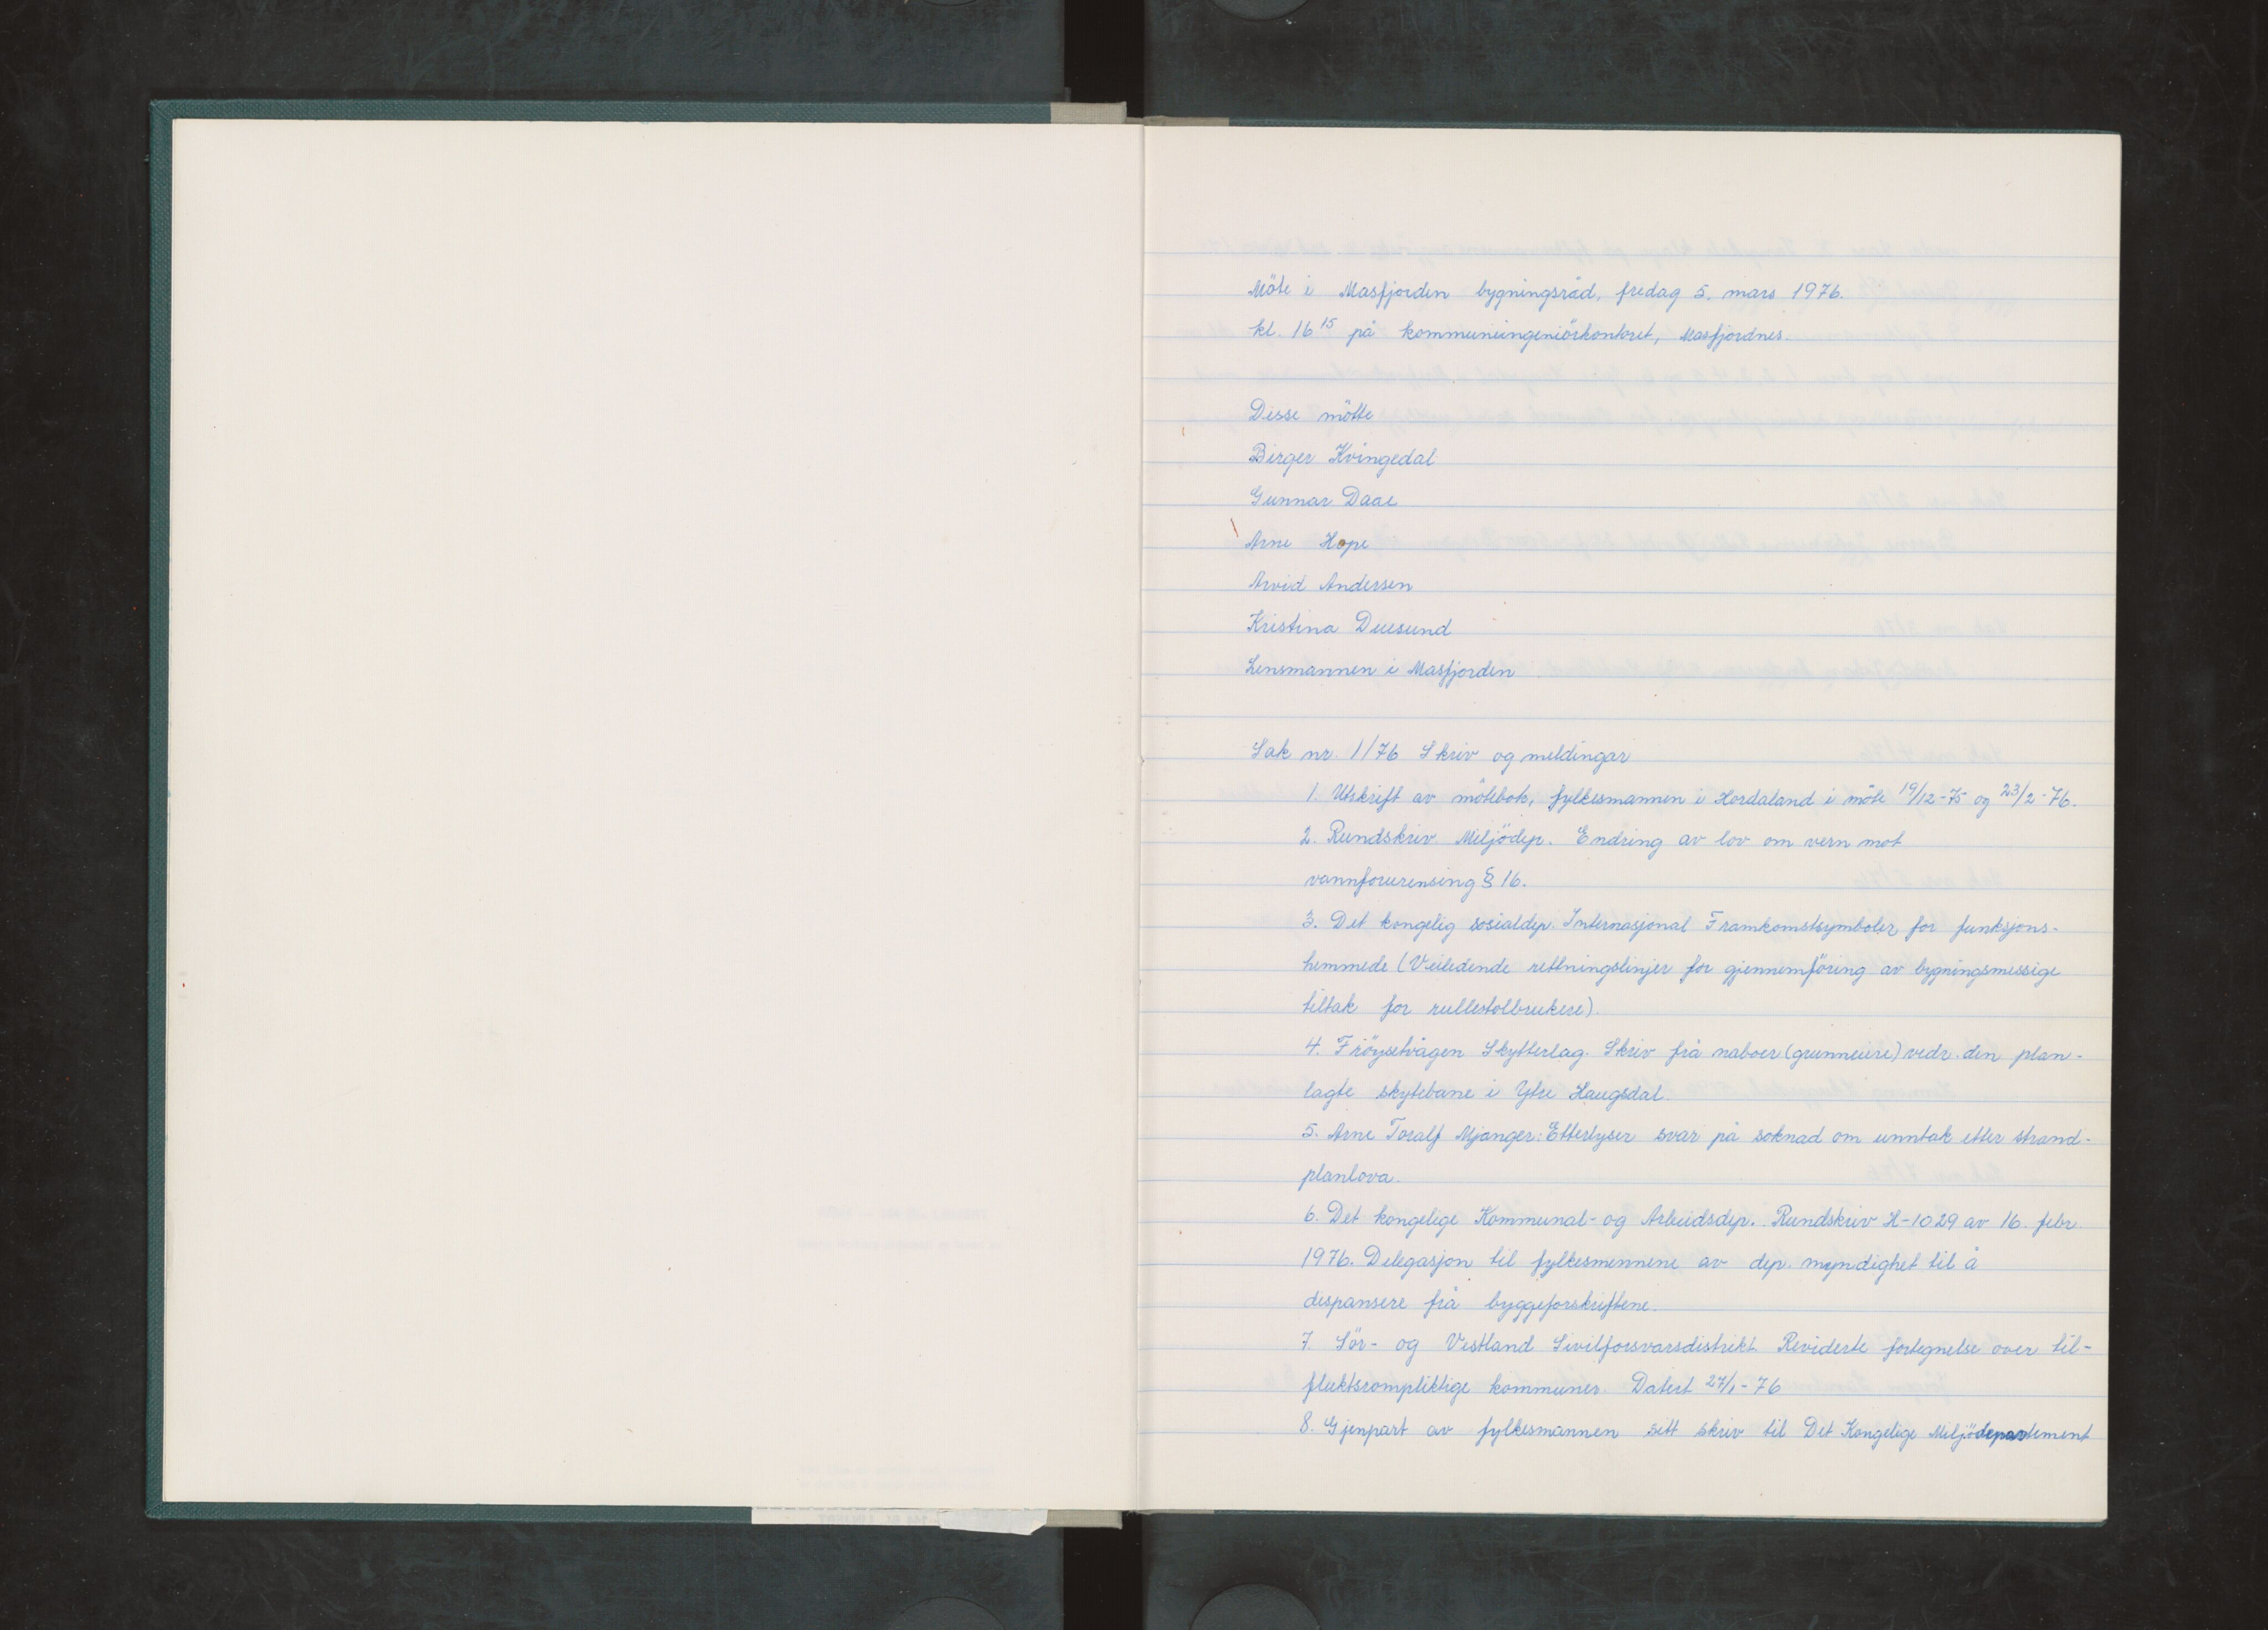 Möte i Masfjorden bygningsråd, fredag 5. mars 1976.
kl. 16 15 på kommuneingeniörkontoret, Masfjordnes.
Desse mötte
Birger Kvingedal
Gunnar Daae
Arne Hope
Arvid Andersen
Kristina Duesund
Lensmannen i Masfjorden
Sak nr. 1/76 Skriv og meldingar
1. Utskrift av mötebok, fylkesmannen i Hordaland i möte 19/12-75 og 23/2-76.
2. Rundskriv Miljödep. Endring av lov om vern mot
vannforurensing § 16.
3. Det kongelig sosialdep. Internasjonal Framkomstsymboler for funksjons-
hemmede (Veiledende rettningslinjer for gjennemföring av bygningsmessige
tiltak for rullestolbrukere).
4. Fröysetvågen Skytterlag. Skriv frå naboer (grunneiere) vedr. den plan-
lagte skytebane i Ytre Haugsdal.
5. Arne Toralf Mjanger: Etterlyser svar på soknad om unntak etter strand-
planlova.
6. Det kongelige Kommunal- og Arbeidsdep. Rundskriv H-1029 av 16. febr
1976. Delegasjon til fylkesmennene av dep. myndighet til å
dispansere frå byggeforskriftene.
7. Sör- og Vestland Sivilforsvarsdistrikt Reviderte fortegnelse over til-
fluktsrompliktige kommuner. Datert 27/1-76
8. Gjenpart av fylkesmannen sitt skriv til Det Kongelige Miljödepartement